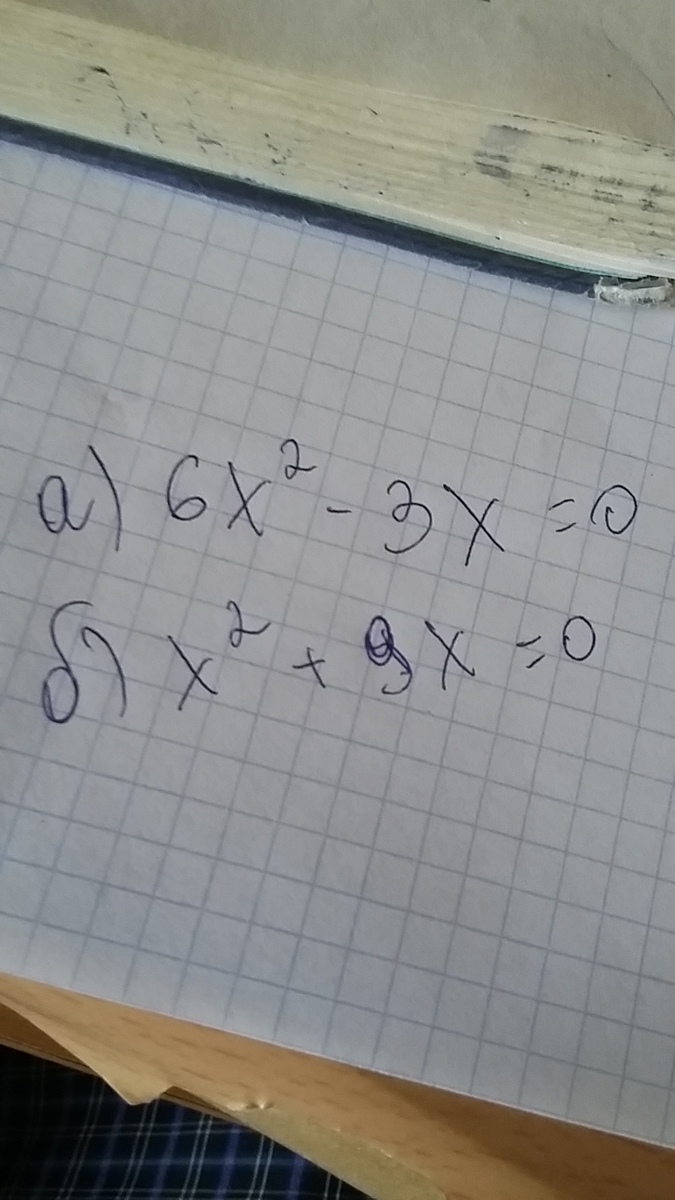 а) 6x² - 3x = 0
б) x² + 9x = 0